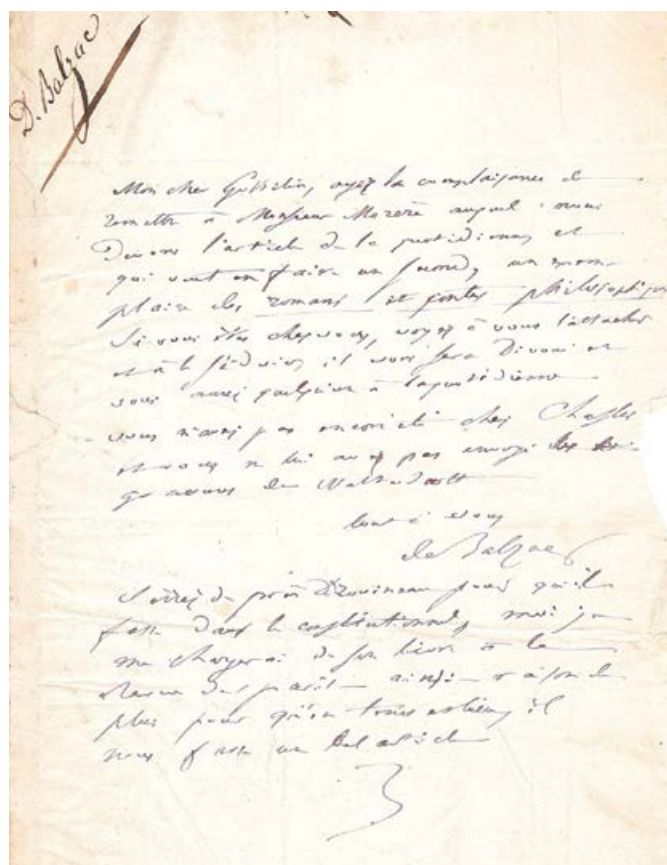 D. Balzac
Mon cher Gosselin, ayez la complaisance de
remettre à Monsieur Mazère auquel nous
devons l'article de la quotidienne et
qui veut en faire un second, un exem-
plaire des romans et contes philosophiques
Si vous êtes chez vous, voyez à vous l'attacher
et à le séduire, il vous sera dévoué et
vous aurez quelqu'un à la quotidienne
vous n'avez pas encore été chez Chasles
et vous ne lui avez pas envoyé les
de Walter Scott
tout à vous
de Balzac
Serrez de près Drouineau pour qu'il
fasse dans le constitutionnel, moi je
me chargerai de son livre à la
revue de paris ainsi raison de
plus pour qu'en trois
nous fasse un bel article